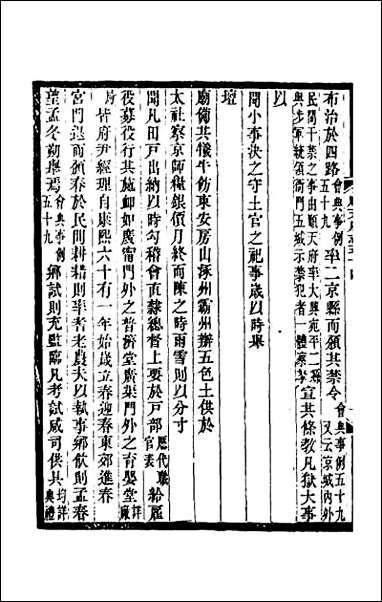 布治於四路會典事例五十九率二京縣而頒其禁令會典事例五十九又云京城內外
民間干禁之事由順天府率大興宛平二縣與步軍統領衙門五城示禁犯者一體察拏宣其條教凡獄大事
以
聞小事決之守土官之祀事歲以時舉
壇
廟備其犧牛飭東安房山涿州霸州辦五色土供於
太社察京師糧銀價月終而陳之時雨雪則以分寸
聞凡田戶出納以時勾稽會直隸總督上要於戶部歷代職官表給雇
役募役行其施卹如廣甯門外之普濟堂廣渠門外之育嬰堂詳廠
局皆府尹經理自康熙六十有一年始歲立春迎春東郊進春
宮門退而頒春於民間耕耤則率耆老農夫以執事鄉飲則孟春
望孟冬朔舉焉會典事例五十九鄉試則充監臨凡考試咸司供具均詳典禮